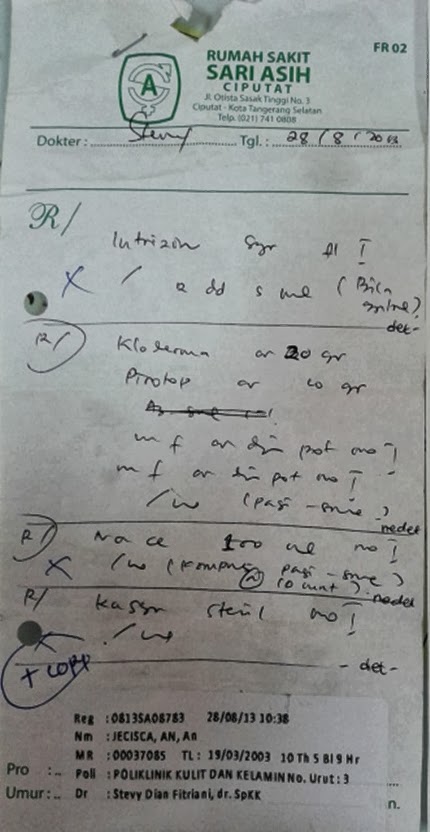 FR 02
RUMAH SAKIT
SARI ASIH
CIPUTAT
Jl. Otista Sasak Tinggi No. 3
Ciputat - Kota Tangerang Selatan
Telp. (021) 741 0808
A
Dokter : Stevy Tgl.: 28/8/2013
R/
Intrizin syr fl I
X / 2 dd 5 ml (Bila
det-
R/ Kloderma or 20 gr
Pirotop or 10 gr
m f or da in pot no I
m f or da in pot no I
/ue (pagi - sore)
nedet
R/ Na cl 100 ml no I
X /ue (Kompres pagi - sore)
nedet
R/ Kassa steril no I
X /ue
- det-
+ copy
Reg : 0813SA08783 28/08/13 10:38
Nm : JECISCA, AN, An
MR : 00037085 TL : 19/03/2003 10 Th 5 Bl 9 Hr
Pro : .. Poli : POLIKLINIK KULIT DAN KELAMIN No. Urut : 3
Umur : .. Dr : Stevy Dian Fitriani, dr. SpKK n.